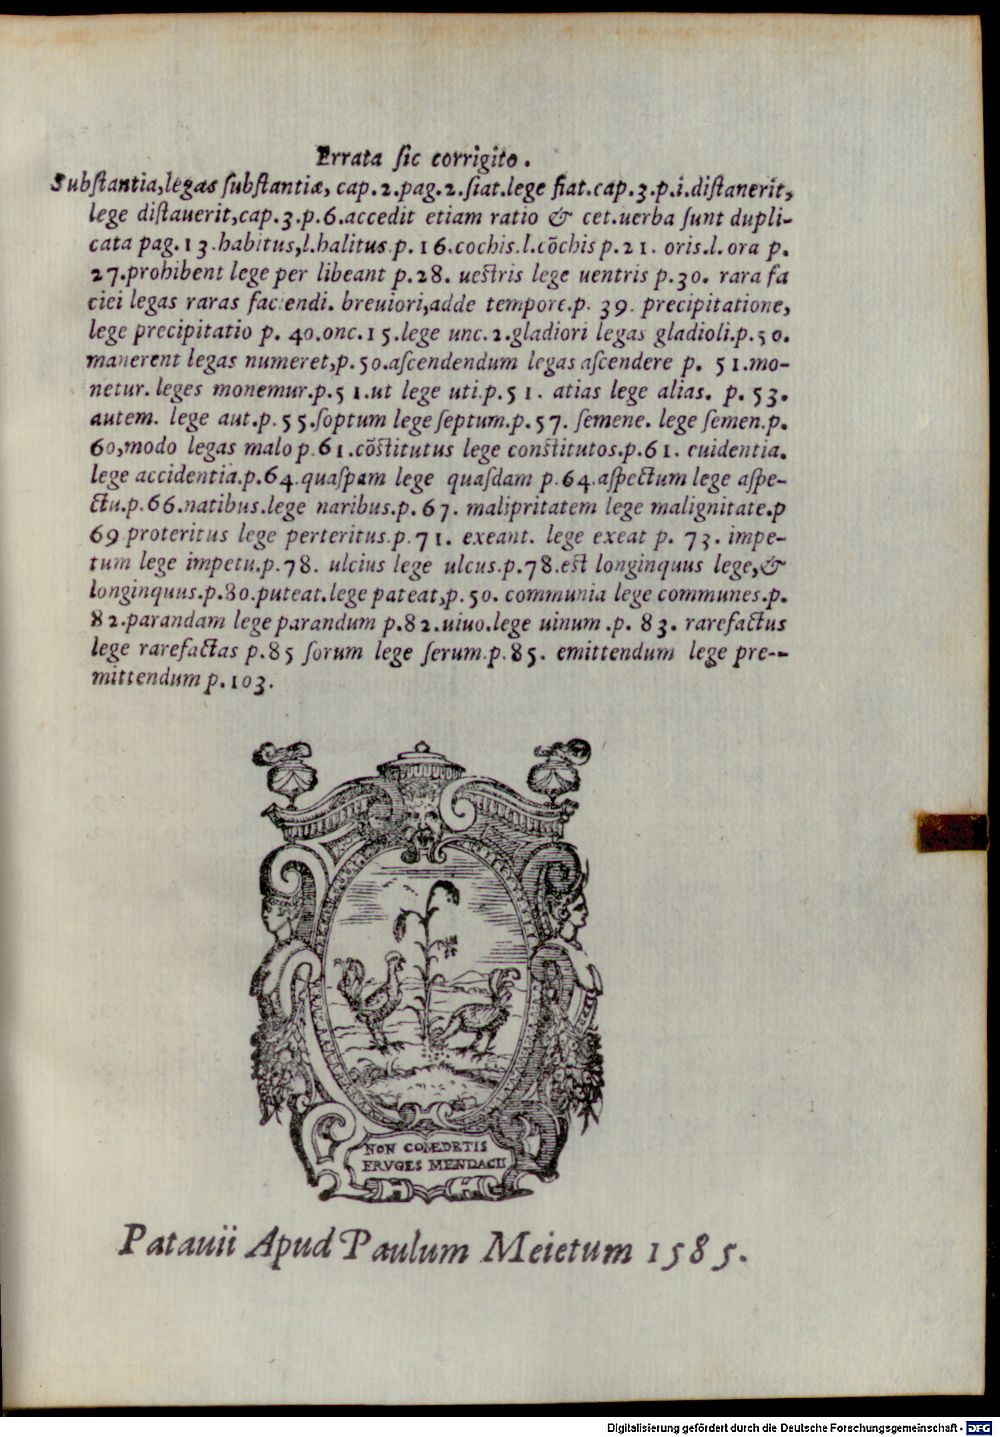 Errata ſic corrigito.
Subſtantia,legas ſubſtantiæ, cap.2.pag.2.ſiat.lege fiat.cap.3.p.i.diſtanerit,
lege diſtauerit,cap.3.p.6.accedit etiam ratio & cet.uerba ſunt dupli-
cata pag.13.habitus,l.halitus.p.16.cochis.l.cõchis p.21. oris.l.ora p.
27.prohibent lege per libeant p.28. ueſtris lege uentris p.30. rara fa
ciei legas raras faciendi. breuiori,adde tempore.p. 39. precipitatione,
lege precipitatio p. 40.onc.15.lege unc.2.gladiori legas gladioli.p.50.
manerent legas numeret,p.50.aſcendendum legas aſcendere p. 51.mo-
netur. leges monemur.p.51.ut lege uti.p.51. atias lege alias. p. 53.
autem. lege aut.p.55.ſoptum lege ſeptum.p.57. ſemene. lege ſemen.p.
60,modo legas malo p.61.cõſtitutus lege conſtitutos.p.61. euidentia.
lege accidentia.p.64.quaſpam lege quaſdam p.64.aſpectum lege aſpe-
ctu.p.66.natibus.lege naribus.p.67. malipritatem lege malignitate.p
69.proteritus lege perteritus.p.71. exeant. lege exeat p. 73. impe-
tum lege impetu.p.78. ulcius lege ulcus.p.78.eſt longinquus lege,&
longinquus.p.80.puteat.lege pateat,p.50. communia lege communes.p.
82.parandam lege parandum p.82.uiuo.lege uinum.p. 83. rarefactus
lege rarefactas p.85 ſorum lege ſerum.p.85. emittendum lege pre--
mittendum p.103.
NON COMEDETIS
FRVGES MENDACII
Patauii Apud Paulum Meietum 1585.
Digitalisierung gefördert durch die Deutsche Forschungsgemeinschaft - DFG